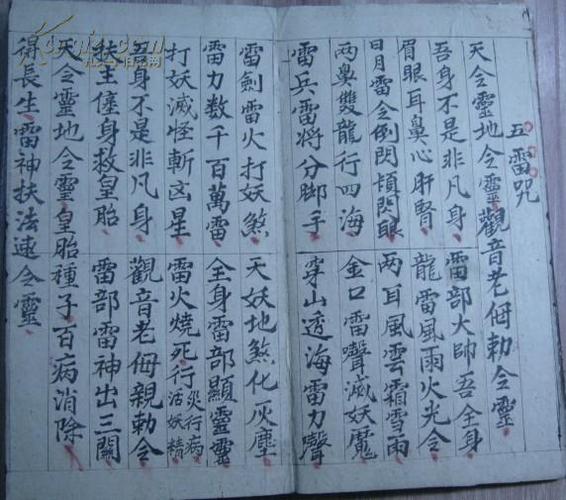 五雷咒
天令靈地令靈觀音老母勅令靈
吾身不是非凡身雷部大帥吾全身
眉眼耳鼻心肝腎龍雷風雨火光令
日月雷令倒閃損閃眼兩耳風雲霜雪雨
两鼻雙龍行四海金口雷聲滅妖魔
雷兵雷將分脚手穿山透海雷力聲
雷劍雷火打妖煞天妖地煞化灰塵
雷力数千百萬雷全身雷部顯靈靈
打妖滅怪斬凶星雷火燒死行災行病活妖精
吾身不是非凡身觀音老母親勅令
扶主僮身救皇胎雷部雷神出三關
天令靈地令靈皇胎種子百病消除
得長生雷神扶法速令靈